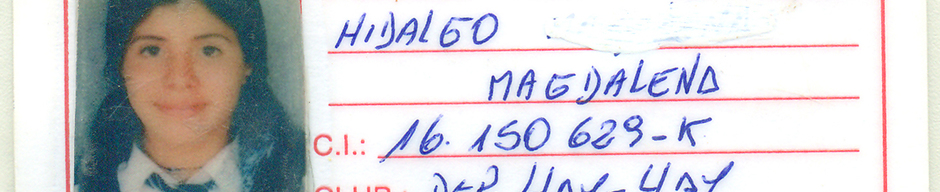 HIDALGO
MAGDALENA
C.I.: 16.150 629-K
CLUB: DEP